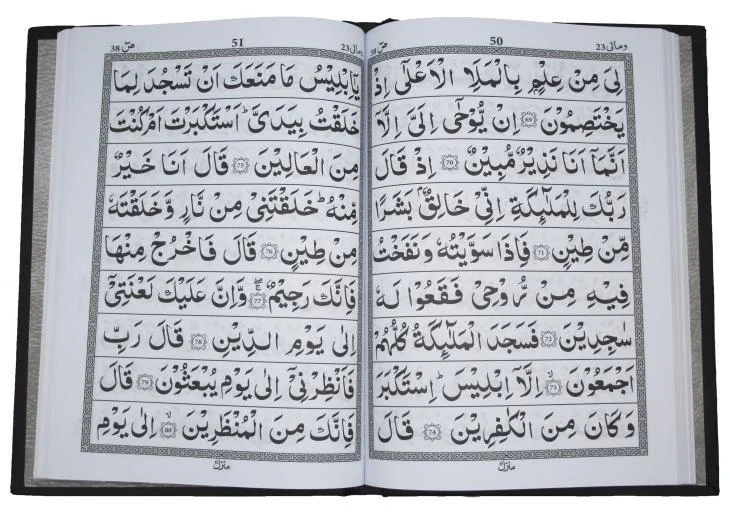 ومالی 23
50
ص 38
لِیَ مِنْ عِلْمٍۭ بِالْمَلَاِ الْاَعْلٰۤی اِذْ
یَخْتَصِمُوْنَ ۝69 اِنْ یُّوْحٰۤی اِلَیَّ اِلَّاۤ
اَنَّمَاۤ اَنَا نَذِیْرٌ مُّبِیْنٌ ۝70 اِذْ قَالَ
رَبُّكَ لِلْمَلٰٓىِٕكَةِ اِنِّیْ خَالِقٌۢ بَشَرًا
مِّنْ طِیْنٍ ۝71 فَاِذَا سَوَّیْتُهٗ وَ نَفَخْتُ
فِیْهِ مِنْ رُّوْحِیْ فَقَعُوْا لَهٗ
سٰجِدِیْنَ ۝72 فَسَجَدَ الْمَلٰٓىِٕكَةُ كُلُّهُمْ
اَجْمَعُوْنَ ۝73 اِلَّاۤ اِبْلِیْسَ ؕ اِسْتَكْبَرَ
وَ كَانَ مِنَ الْكٰفِرِیْنَ ۝74 قَالَ
منزل
ومالی 23
51
ص 38
یٰۤاِبْلِیْسُ مَا مَنَعَكَ اَنْ تَسْجُدَ لِمَا
خَلَقْتُ بِیَدَیَّ ؕ اَسْتَكْبَرْتَ اَمْ كُنْتَ
مِنَ الْعَالِیْنَ ۝75 قَالَ اَنَا خَیْرٌ
مِّنْهُ ؕ خَلَقْتَنِیْ مِنْ نَّارٍ وَّ خَلَقْتَهٗ
مِنْ طِیْنٍ ۝76 قَالَ فَاخْرُجْ مِنْهَا
فَاِنَّكَ رَجِیْمٌ ۝77 وَّ اِنَّ عَلَیْكَ لَعْنَتِیْۤ
اِلٰی یَوْمِ الدِّیْنِ ۝78 قَالَ رَبِّ
فَاَنْظِرْنِیْۤ اِلٰی یَوْمِ یُبْعَثُوْنَ ۝79 قَالَ
فَاِنَّكَ مِنَ الْمُنْظَرِیْنَ ۝80 اِلٰی یَوْمِ
منزل